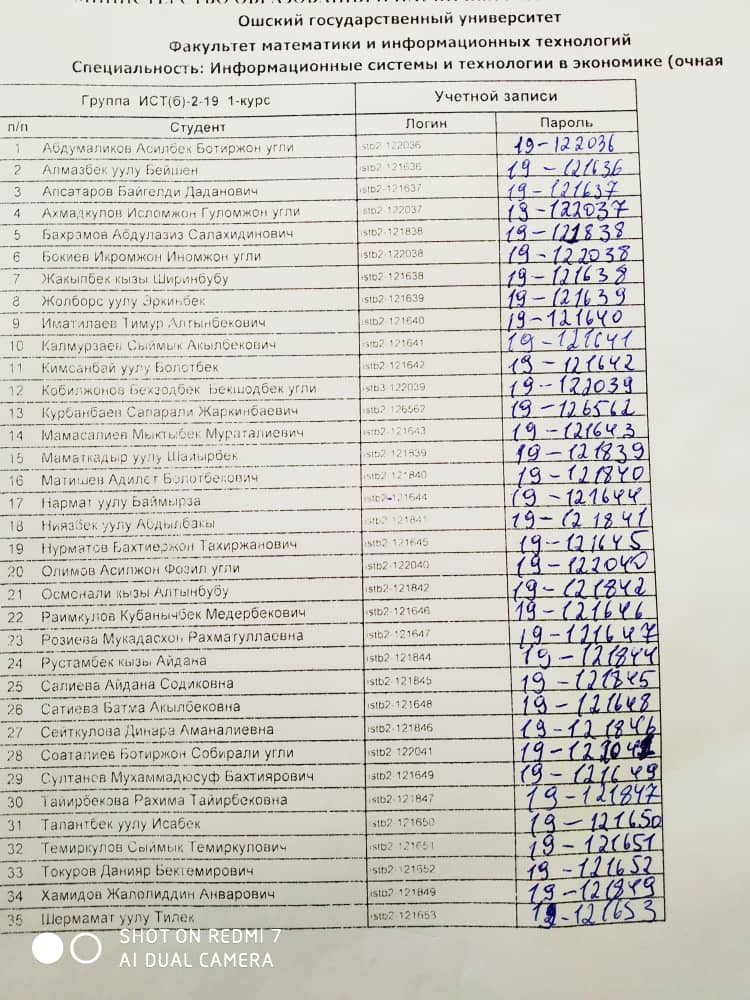 Ошский государственный университет
Факультет математики и информационных технологий
Специальность: Информационные системы и технологии в экономике (очная
Группа ИСТ(б)-2-19 1-курс Учетной записи
п/п Студент Логин Пароль
1 Абдумаликов Асилбек Ботиржон угли istb2-122036 19-122036
2 Алмазбек уулу Бейшен istb2-121636 19-121636
3 Апсатаров Байгелди Даданович istb2-121637 19-121637
4 Ахмадкулов Исломжон Гуломжон угли istb2-122037 19-122037
5 Бахрамов Абдулазиз Салахидинович istb2-121838 19-121838
6 Бокиев Икромжон Иномжон угли istb2-122038 19-122038
7 Жакыпбек кызы Ширинбубу istb2-121638 19-121638
8 Жолборс уулу Эркинбек istb2-121639 19-121639
9 Иматилаев Тимур Алтынбекович istb2-121640 19-121640
10 Калмурзаев Сыймык Акылбекович istb2-121641 19-121641
11 Кимсанбай уулу Болотбек istb2-121642 19-121642
12 Кобилжонов Бехзодбек Бекшодбек угли istb3-122039 19-122039
13 Курбанбаев Сапарали Жаркинбаевич istb2-126562 19-126562
14 Мамасалиев Мыктыбек Мураталиевич istb2-121643 19-121643
15 Маматкадыр уулу Шайырбек istb2-121839 19-121839
16 Матишев Адилет Болотбекович istb2-121840 19-121840
17 Нармат уулу Баймырза istb2-121644 19-121644
18 Ниязбек уулу Абдылбакы istb2-121841 19-121841
19 Нурматов Бахтиержон Тахиржанович istb2-121645 19-121645
20 Олимов Асилжон Фозил угли istb2-122040 19-122040
21 Осмонали кызы Алтынбубу istb2-121842 19-121842
22 Раимкулов Кубанычбек Медербекович istb2-121646 19-121646
23 Розиева Мукадасхон Рахматуллаевна istb2-121647 19-121647
24 Рустамбек кызы Айдана istb2-121844 19-121844
25 Салиева Айдана Содиковна istb2-121845 19-121845
26 Сатиева Батма Акылбековна istb2-121648 19-121648
27 Сейткулова Динара Аманалиевна istb2-121846 19-121846
28 Соаталиев Ботиржон Собирали угли istb2-122041 19-122041
29 Султанов Мухаммадюсуф Бахтиярович istb2-121649 19-121649
30 Тайирбекова Рахима Тайирбековна istb2-121847 19-121847
31 Талантбек уулу Исабек istb2-121650 19-121650
32 Темиркулов Сыймык Темиркулович istb2-121651 19-121651
33 Токуров Данияр Бектемирович istb2-121652 19-121652
34 Хамидов Жалолиддин Анварович istb2-121849 19-121849
35 Шермамат уулу Тилек istb2-121653 19-121653
SHOT ON REDMI 7
AI DUAL CAMERA